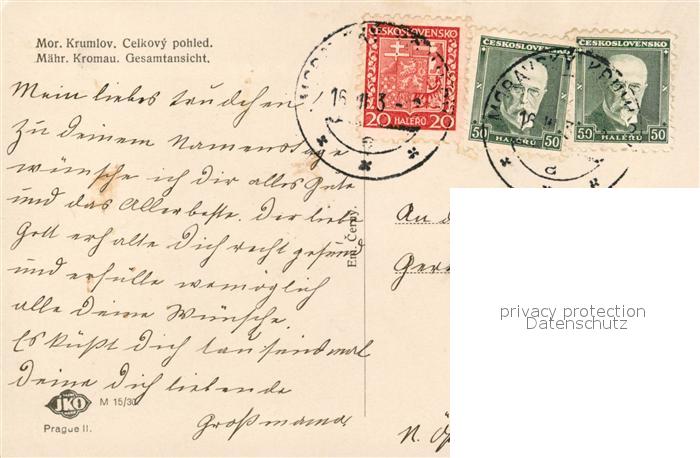 Mor. Krumlov. Celkový pohled.
Mähr. Kromau. Gesamtansicht.
Mein liebes Trudchen
Zu deinem Namenstage
wünsche ich dir alles Gute
und das Allerbeste. Der liebe
Gott erhalte dich recht gesund
und erfülle womöglich
alle deine Wünsche.
Es küßt dich tausendmal
deine dich liebende
Großmama
JKO
M 15/30
Prague II.
Em. Černý.
ČESKOSLOVENSKO
20 HALÉŘŮ 20
ČESKOSLOVENSKO
50 HALÉŘŮ 50
ČESKOSLOVENSKO
50 HALÉŘŮ 50
An
Ger
N. Ö
privacy protection
Datenschutz